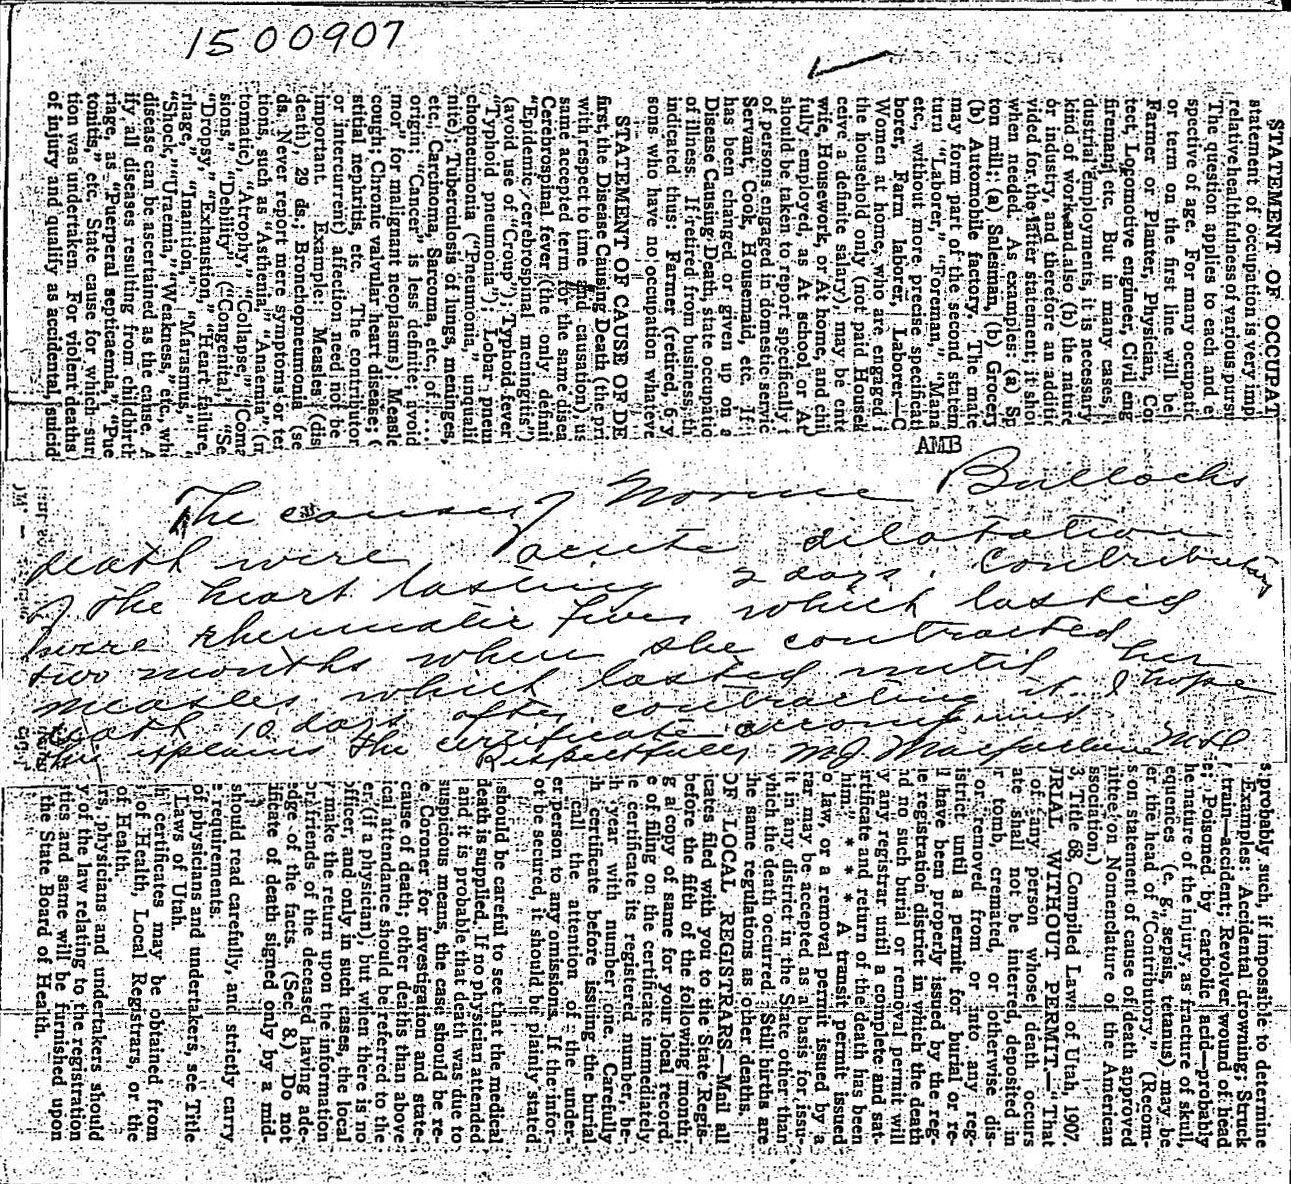 1500907
STATEMENT OF OCCUPAT
statement of occupation is very imp
relative healthfulness of various pursu
The question applies to each and e
spective of age. For many occupatio
or term on the first line will be
Farmer or Planter, Physician, Co
tect, Locomotive engineer, Civil eng
fireman, etc. But in many cases,
dustrial employments, it is necessary
kind of work and also (b) the nature
or industry, and therefore an additi
vided for the latter statement; it shou
when needed. As examples: (a) Sp
ton mill; (a) Salesman, (b) Grocery
(b) Automobile factory. The mate
may form part of the second statem
turn "Laborer," "Foreman," "Mana
etc., without more precise specificat
borer, Farm laborer, Laborer—C
Women at home, who are engaged i
the household only (not paid Househ
ceive a definite salary) may be ente
wife, Housework, or At home, and chi
fully employed, as At school or At
should be taken to report specifically t
of persons engaged in domestic servic
Servant, Cook, Housemaid, etc. If
has been changed or given up on a
Disease Causing Death, state occupatio
of illness. If retired from business, th
indicated thus: Farmer (retired, 6 y
sons who have no occupation whateve
STATEMENT OF CAUSE OF DE
first, the Disease Causing Death (the pri
with respect to time and causation), us
same accepted term for the same disea
Cerebrospinal fever (the only definit
"Epidemic cerebrospinal meningitis")
(avoid use of "Croup"); Typhoid fever
"Typhoid pneumonia"); Lobar pneum
chopneumonia ("Pneumonia," unqualif
nite); Tuberculosis of lungs, meninges,
etc., Carcinoma, Sarcoma, etc., of
origin; "Cancer" is less definite; avoid
mor" for malignant neoplasms); Measle
cough; Chronic valvular heart disease; C
stitial nephritis, etc. The contributor
or intercurrent) affection need not be
important. Example: Measles (dis
death), 29 ds.; Bronchopneumonia (se
ds. Never report mere symptoms or ter
tions, such as "Asthenia," "Anaemia" (m
tomatic), "Atrophy," "Collapse," "Coma
sions," "Debility" ("Congenital," "Se
"Dropsy," "Exhaustion," "Heart failure,
rhage," "Inanition," "Marasmus,"
"Shock," "Uraemia," "Weakness," etc., wh
disease can be ascertained as the cause. A
ify all diseases resulting from childbirth
riage, as "Puerperal septicaemia," "Pue
tonitis," etc. State cause for which sur
tion was undertaken. For violent deaths
of injury and qualify as accidental, suicid
AMB
The causes of Norine Bullochs
death were acute dilatation
of the heart lasting 2 days. Contributary
were rheumatic fever which lasted
two months when she contracted
measles which lasted until her
death 10 days after contracting it. I hope
this explains the certificate
Respectfully M.J. Macfarlane M.D.
s probably such, if impossible to determine
Examples: Accidental drowning; Struck
train—accident; Revolver wound of head
e; Poisoned by carbolic acid—probably
he nature of the injury, as fracture of skull,
equences (e. g., sepsis, tetanus) may be
er the head of "Contributory." (Recom-
s on statement of cause of death approved
ittee on Nomenclature of the American
ssociation.)
3, Title 68, Compiled Laws of Utah, 1907
URIAL WITHOUT PERMIT.—"That
of any person whose death occurs
ate shall not be interred, deposited in
r tomb, cremated, or otherwise dis-
or removed from or into any reg-
istrict until a permit for burial or re-
l have been properly issued by the reg-
e registration district in which the death
nd no such burial or removal permit will
y any registrar until a complete and sat-
rtificate and return of the death has been
him." * * * A transit permit issued
o law, or a removal permit issued by a
rar may be accepted as a basis for issu-
it in any district in the State other than
which the death occurred. Still births are
the same regulations as other deaths.
OF LOCAL REGISTRARS—Mail all
icates filed with you to the State Regis-
before the fifth of the following month;
g a copy of same for your local record.
e of filing on the certificate immediately
e certificate, its registered number, be-
h year with number one. Carefully
h certificate before issuing the burial
call the attention of the under-
er person to any omissions. If the infor-
ot be secured, it should be plainly stated
should be careful to see that the medical
death is supplied. If no physician attended
and it is probable that death was due to
suspicious means, the case should be re-
e Coroner for investigation and state-
cause of death; other deaths than above
ical attendance should be referred to the
er (if a physician), but when there is no
officer, and only in such cases, the local
y make the return upon the information
or friends of the deceased having ade-
edge of the facts. (Sec. 8.) Do not
ificate of death signed only by a mid-
should read carefully, and strictly carry
e requirements.
of physicians and undertakers, see Title
Laws of Utah.
h certificates may be obtained from
of Health, Local Registrars, or the
of Health.
rs, physicians and undertakers should
y of the law relating to the registration
ities and same will be furnished upon
the State Board of Health.